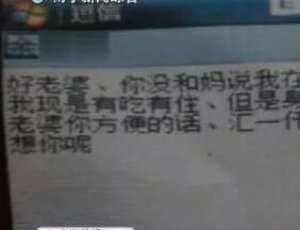 短信
好老婆、你没和妈说我在
我现是有吃有住、但是是
老婆你方便的话、汇一仟
想你呢